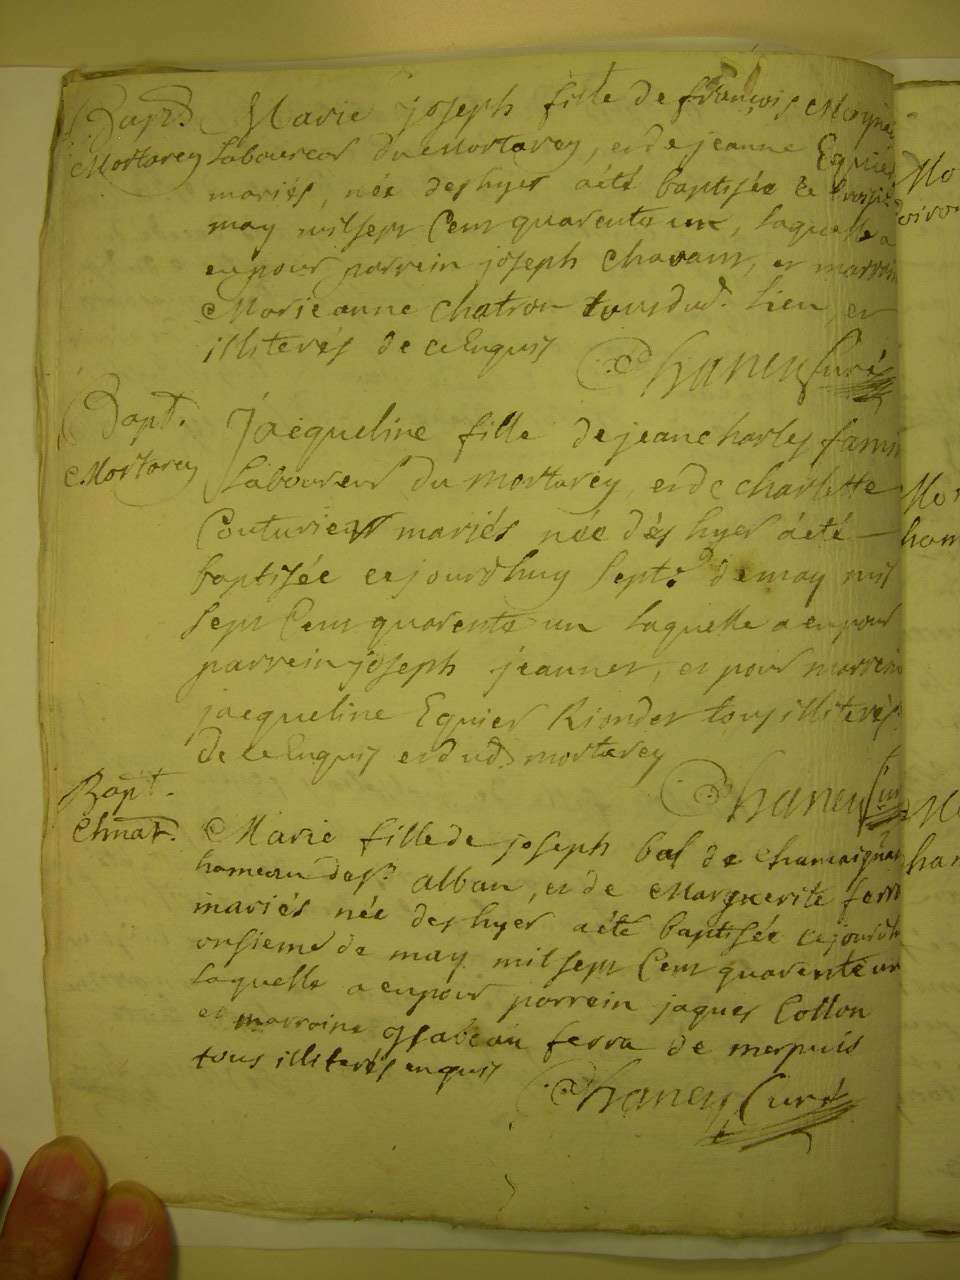 Bapt. Marie joseph fille de françois Moynie
Mortarey Laboureur du Mortarey, et de jeanne Equier
mariés, née des hyer a été baptisée le
may mil sept Cent quarente un, laquelle a
eu pour parrein joseph Chavant, et marrein
Marie anne Chatron tous dud. lieu, et
illiterés de ce Enquis
Chaney Curé
Bapt. Jacqueline fille de jean charles
Mortarey Laboureur du mortarey, et de charlotte
Couturier mariés née des hyer a été
baptisée cejourdhuy sept.e de may mil
sept Cent quarente un laquelle a eu pour
parrein joseph jeannet, et pour marrein
jacqueline Equier Riondet tous illiterés
de ce Enquis et dud. mortarey
Chaney Cur
Bapt.
Chmat. Marie fille de joseph bal de
hameau de St alban, et de Marguerite ferra
mariés née des hyer a été baptisée cejourdh
onsieme de may mil sept Cent quarente un
laquelle a eu pour parrein jaques Collon
et marraine ysabeau ferra de merpuis
tous illiterés enquis
Chaney Curé
Mo
Mor
ham
ham